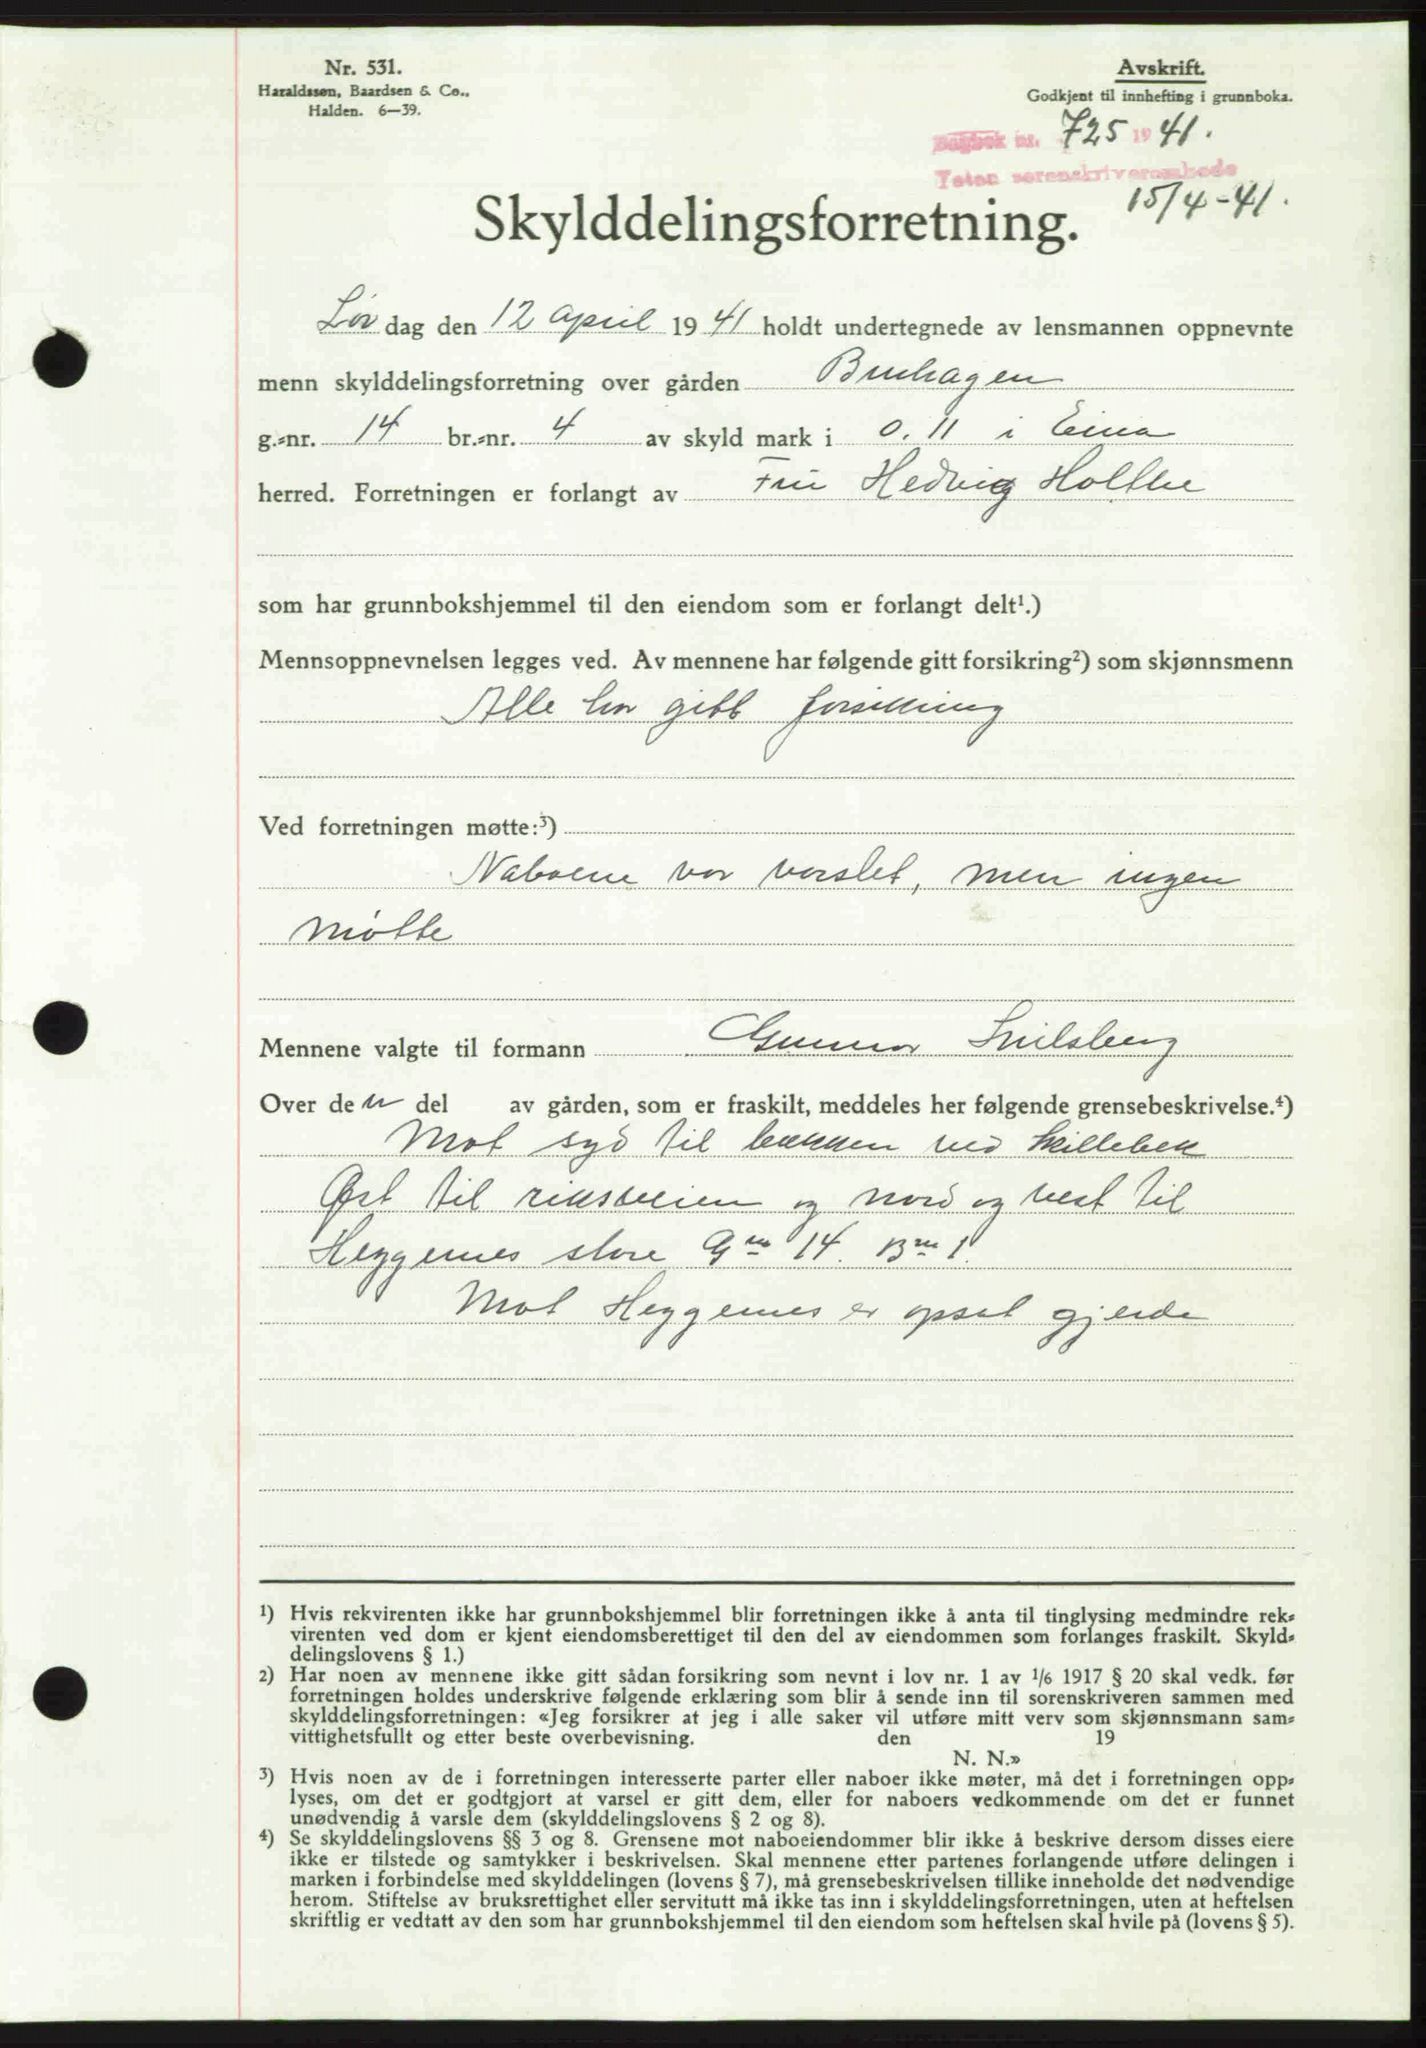 Nr. 531.
Haraldssøn, Baardsen & Co.,
Halden. 6—39.
Avskrift.
Godkjent til innhefting i grunnboka.
Dagbok nr. 725 1941.
Toten sorenskriverembede
15/4-41.
Skylddelingsforretning.
Lør dag den 12 april 1941 holdt undertegnede av lensmannen oppnevnte
menn skylddelingsforretning over gården Bruhagen
g.-nr. 14 br.-nr. 4 av skyld mark i 0.11 i Eina
herred. Forretningen er forlangt av Fru Hedvig Holthe
som har grunnbokshjemmel til den eiendom som er forlangt delt¹.)
Mennsoppnevnelsen legges ved. Av mennene har følgende gitt forsikring²) som skjønnsmenn
Alle har gitt forsikring
Ved forretningen møtte:³)
Naboene var varslet, men ingen
møtte
Mennene valgte til formann Gunnar
Over den del av gården, som er fraskilt, meddeles her følgende grensebeskrivelse.⁴)
Mot syd til bekken ved Skillebek
Øst til riksveien og nord og vest til
Heggernes store Gnr 14. Bnr 1.
Mot Heggernes er opsat gjerde
¹) Hvis rekvirenten ikke har grunnbokshjemmel blir forretningen ikke å anta til tinglysing medmindre rek-
virenten ved dom er kjent eiendomsberettiget til den del av eiendommen som forlanges fraskilt. Skyld-
delingslovens § 1.)
²) Har noen av mennene ikke gitt sådan forsikring som nevnt i lov nr. 1 av 1/6 1917 § 20 skal vedk. før
forretningen holdes underskrive følgende erklæring som blir å sende inn til sorenskriveren sammen med
skylddelingsforretningen: «Jeg forsikrer at jeg i alle saker vil utføre mitt verv som skjønnsmann sam-
vittighetsfullt og etter beste overbevisning. den 19
N. N.»
³) Hvis noen av de i forretningen interesserte parter eller naboer ikke møter, må det i forretningen opp-
lyses, om det er godtgjort at varsel er gitt dem, eller for naboers vedkommende om det er funnet
unødvendig å varsle dem (skylddelingslovens § 2 og 8).
⁴) Se skylddelingslovens §§ 3 og 8. Grensene mot naboeiendommer blir ikke å beskrive dersom disses eiere
ikke er tilstede og samtykker i beskrivelsen. Skal mennene etter partenes forlangende utføre delingen i
marken i forbindelse med skylddelingen (lovens § 7), må grensebeskrivelsen tillike inneholde det nødvendige
herom. Stiftelse av bruksrettighet eller servitutt må ikke tas inn i skylddelingsforretningen, uten at heftelsen
skriftlig er vedtatt av den som har grunnbokshjemmel til den eiendom som heftelsen skal hvile på (lovens § 5).